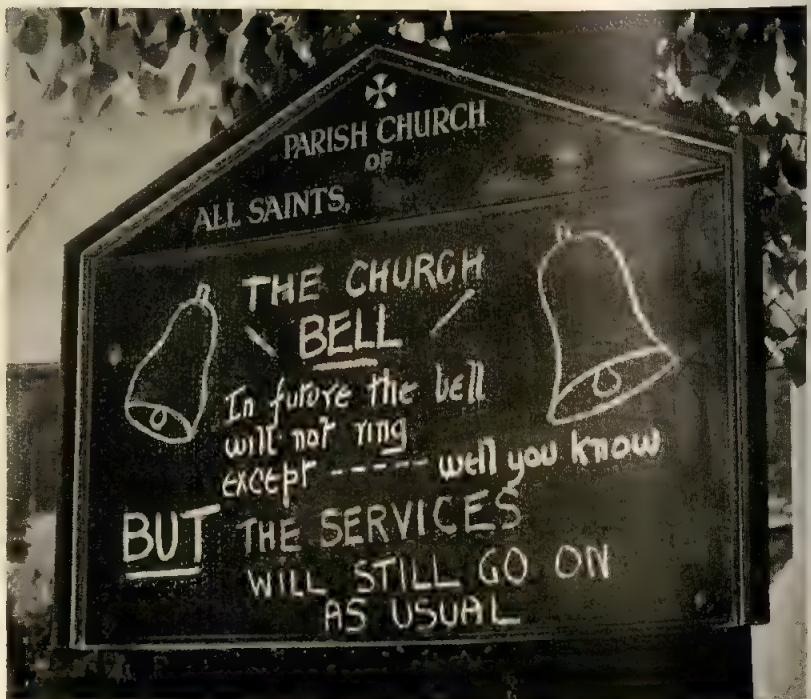 PARISH CHURCH
OF
ALL SAINTS,
THE CHURCH
BELL
In future the bell
will not ring
except ----- well you know
BUT THE SERVICES
WILL STILL GO ON
AS USUAL